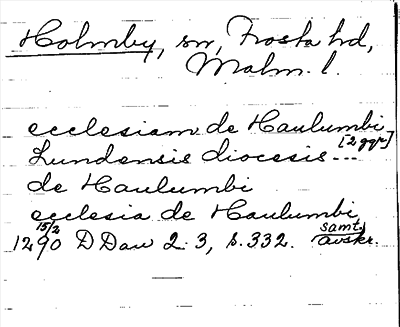 Holmby, sn, Frosta hd,
Malm. l.
ecclesiam de Haulumbi
[2 ggr]
Lundensis diocesis ---
de Haulumbi
ecclesia de Haulumbi
15/2
1290 DDan 2:3, s. 332. samt. avskr.